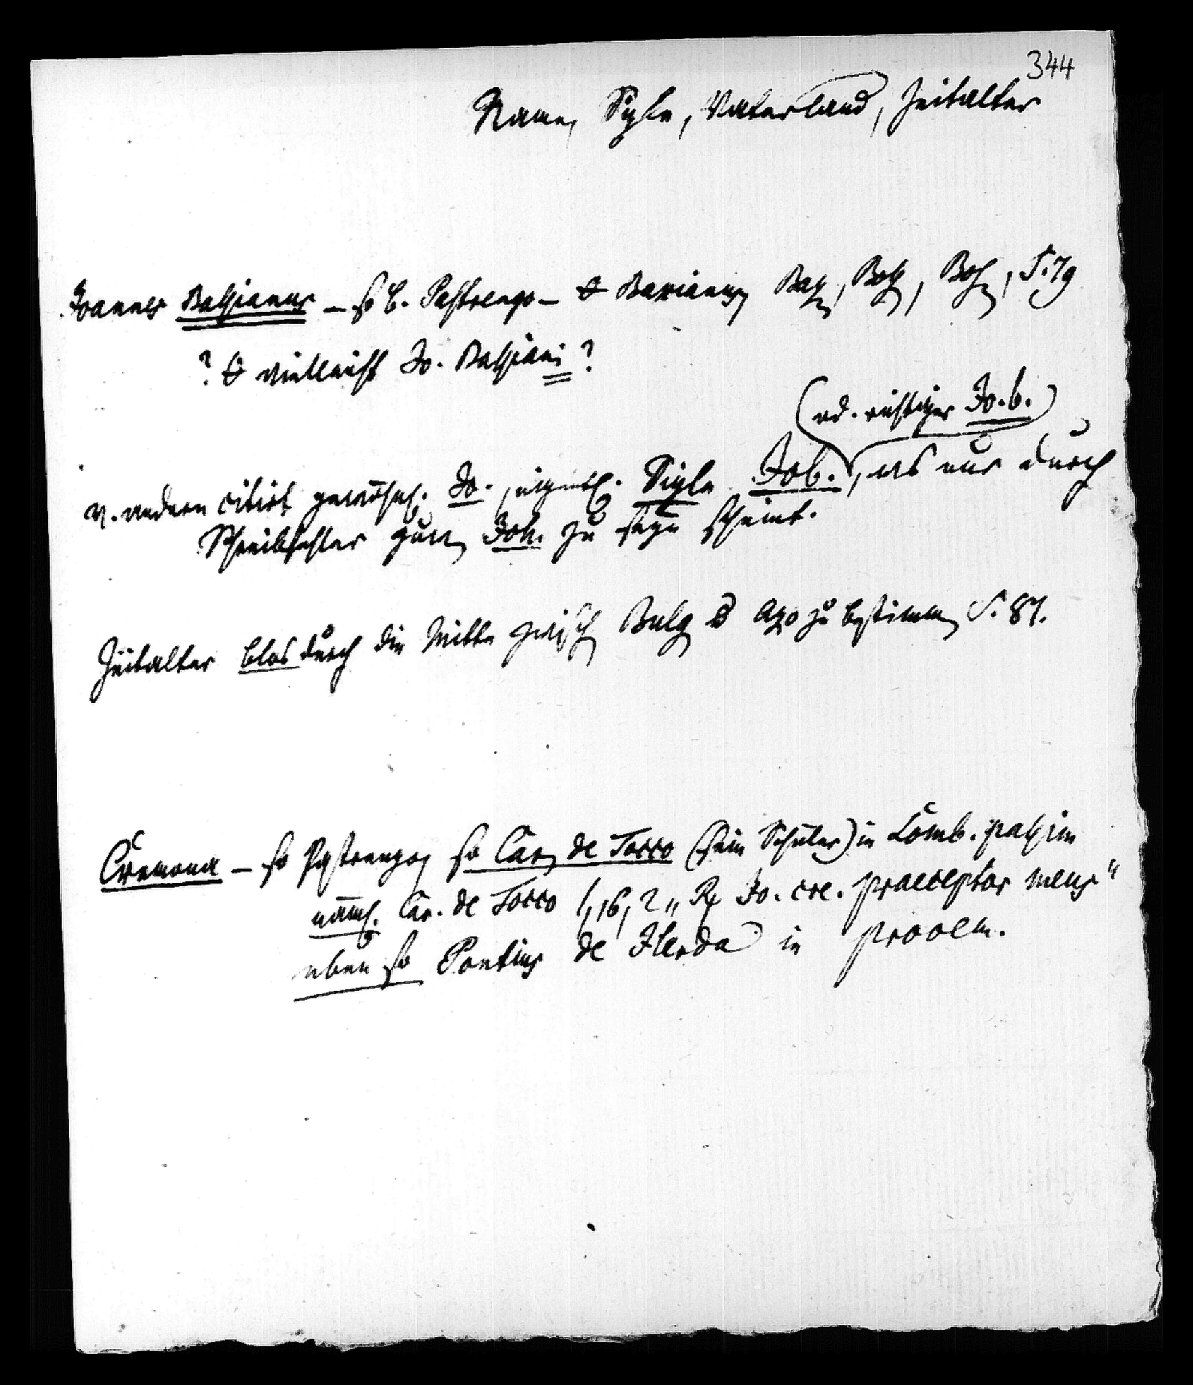 344
Name, Sigle, Vaterland, Zeitalter
Joannes Bassianus – so b. Pastrengo – Baxianus, Bax, Boss, Bos, S. 79
? vielleicht Jo. Bassiani?
(od. richtiger Jo. b.)
v. andern citirt gewöhnl. Jo., eigentl. Sigle Job., das nur durch
Schreibfehler zu Joh. zu seyn scheint.
Zeitalter blos durch die Mitte zwisch Bulg u Azo zu bestimmen S. 87.
Cremona – so Pastrengo, so Car. de Tocco (sein Schüler) in Lomb. passim
nämlich Car. de Tocco 1, 16, 2 „ Jo. cre. praeceptor meus“
eben so Pontius de Ilerda in prooem.